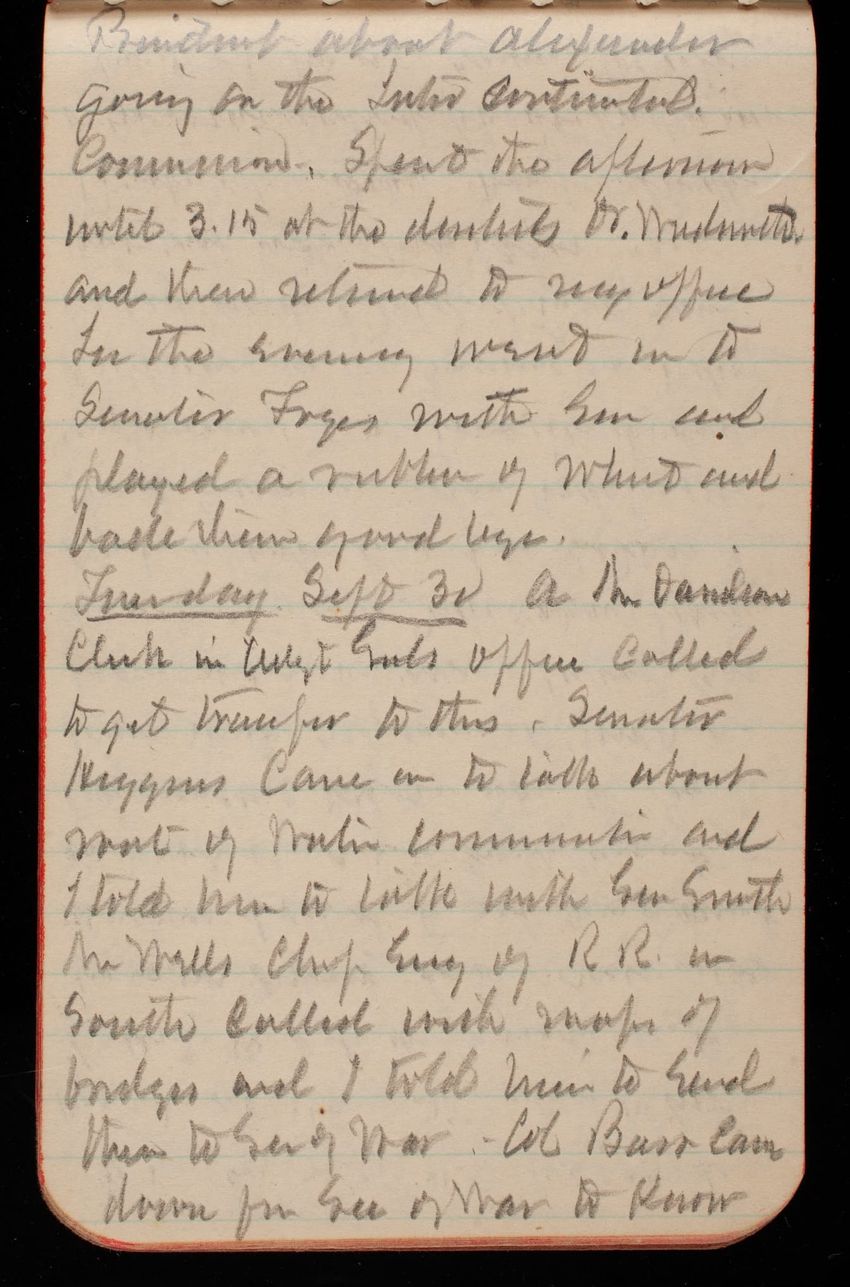 President about Alexander
going on the Inter Continental.
Commission. Spent the afternoon
until 3.15 at the dentists Dr.
and then returned to my office
In the evening went in to
Senator Fryes with Gen and
played a rubber of Whist and
bade them good bye.
Tuesday Sept 30 A Mr Davidson
Clerk in Adjt Genls office Called
to get transfer to this. Senator
Higgins Came in to talk about
want of Water communication and
I told him to talk with Gen Smith
Mr Wells Chf Eng of R R. in
South Called with maps of
bridges and I told him to Send
them to Sec of War. Col Barr Came
down for Sec of War to Know